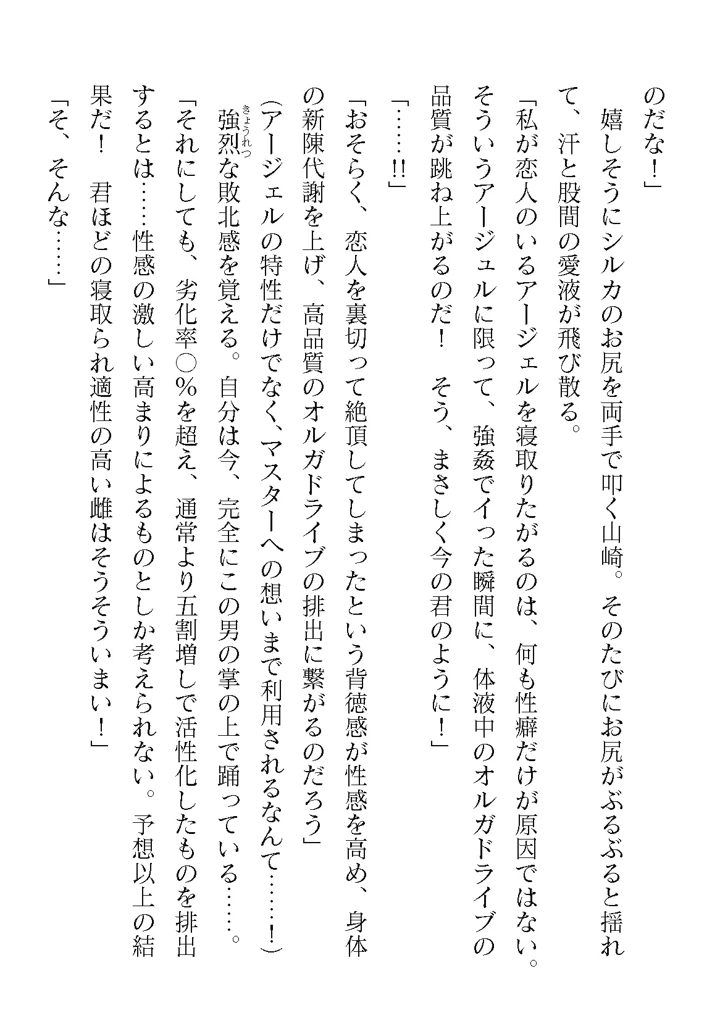 のだな！」
　嬉しそうにシルカのお尻を両手で叩く山崎。そのたびにお尻がぶるぶると揺れ
て、汗と股間の愛液が飛び散る。
「私が恋人のいるアージェルを寝取りたがるのは、何も性癖だけが原因ではない。
そういうアージェルに限って、強姦でイった瞬間に、体液中のオルガドライブの
品質が跳ね上がるのだ！　そう、まさしく今の君のように！」
「……!!」
「おそらく、恋人を裏切って絶頂してしまったという背徳感が性感を高め、身体
の新陳代謝を上げ、高品質のオルガドライブの排出に繋がるのだろう」
（アージェルの特性だけでなく、マスターへの想いまで利用されるなんて……！）
　強烈な敗北感を覚える。自分は今、完全にこの男の掌の上で踊っている……。
きょうれつ
「それにしても、劣化率〇％を超え、通常より五割増しで活性化したものを排出
するとは……性感の激しい高まりによるものとしか考えられない。予想以上の結
果だ！　君ほどの寝取られ適性の高い雌はそうそういまい！」
「そ、そんな……」